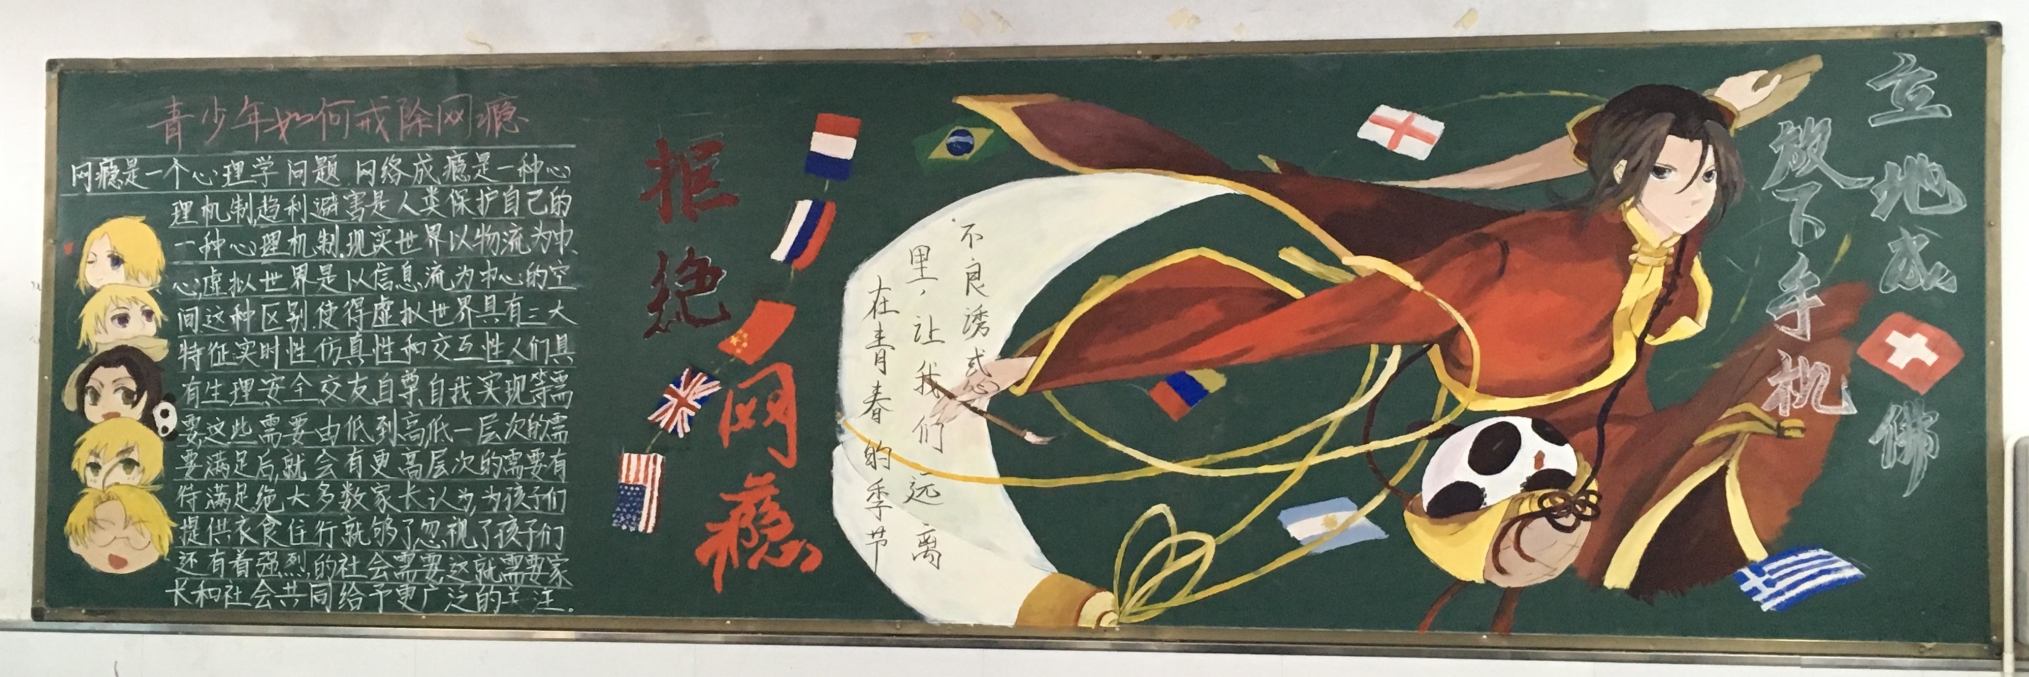 青少年如何戒除网瘾
网瘾是一个心理学问题 网络成瘾是一种心
理机制,趋利避害是人类保护自己的
一种心理机制.现实世界以物流为中
心,虚拟世界是以信息流为中心的空
间这种区别.使得虚拟世界具有三大
特征实时性仿真性和交互性.人们具
有生理安全,交友,自尊,自我实现等需
要,这些需要由低到高低一层次的需
要满足后,就会有更高层次的需要有
待满足绝大多数家长认为为孩子们
提供衣食住行就够了忽视了孩子们
还有着强烈的社会需要这就需要家
长和社会共同给予更广泛的关注.
拒绝
网瘾
在青春的季节
里，让我们远离
不良诱惑
放下手机
立地成佛